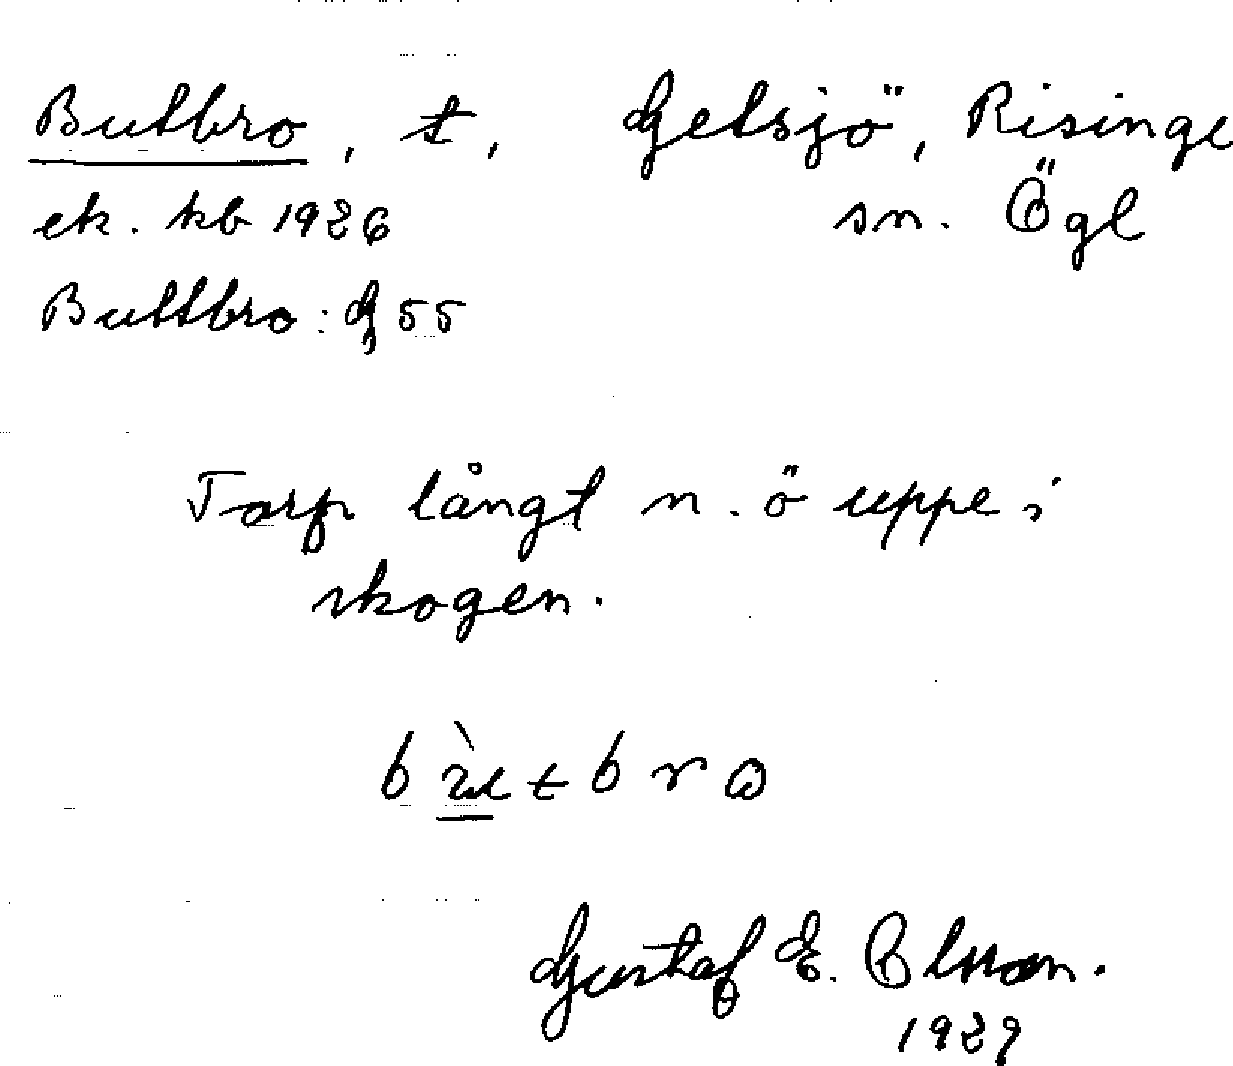 Butbro, t, Getsjö, Risinge
ek. kb 1926 sn. Ögl
Buttbro: G 55
Torp långt n.ö uppe i
skogen.
bùtbro
Gustaf E. Olsson.
1929